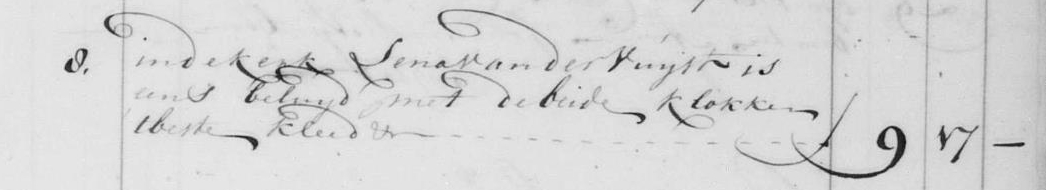 8. in de kerk Lena Van der Kuyst is
eens beluyd met de beide klokken
tbeste kleed &r 9 17 —